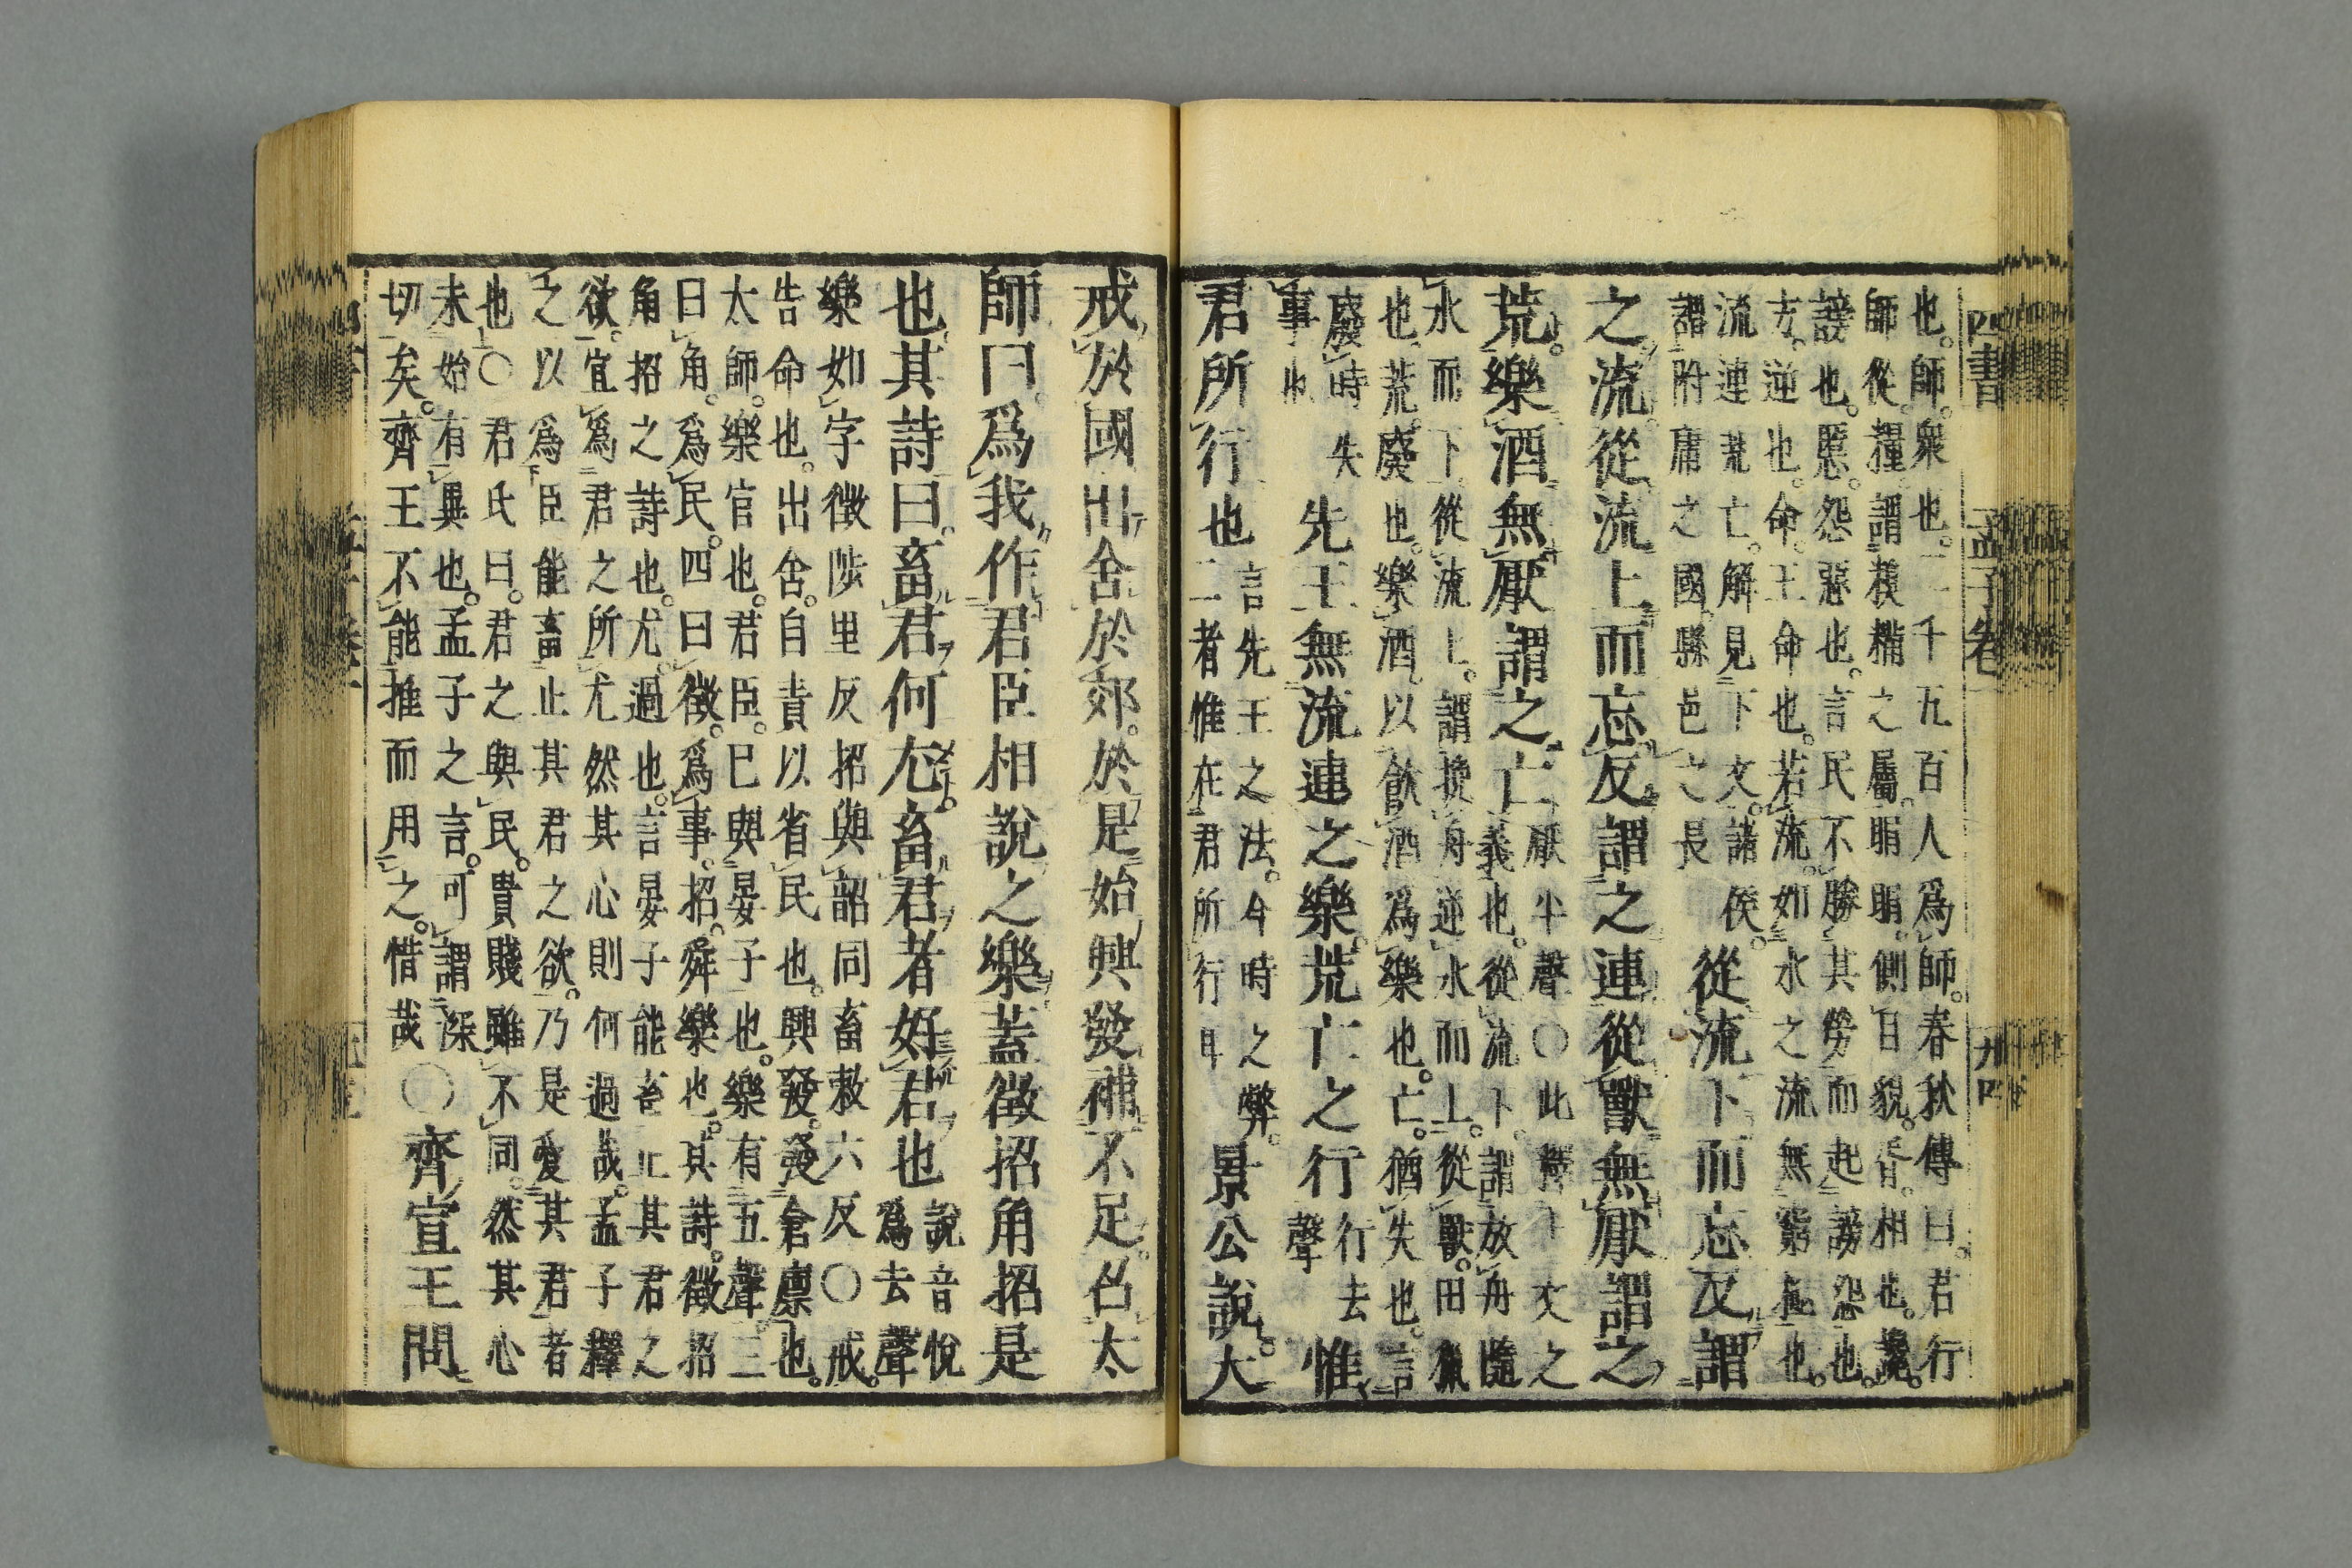 四書 孟子卷一 九四
也。師。衆也。二千五百人爲師。春秋傳曰。君行
師從。糧。謂糗糒之屬。睊睊。側目貌。胥。相也。讒。
謗也。慝。怨惡也。言民不勝其勞。而起謗怨也。
方。逆也。命。王命也。若流。如水之流無窮極也。
流連荒亡。解見下文。諸侯。
謂附庸之國。縣邑之長
從流下而忘反謂
之流從流上而忘反謂之連從獸無厭謂之
荒樂酒無厭謂之亡
厭平聲○此釋上文之
義也。從流下。謂放舟隨
水而下。從流上。謂挽舟逆水而上。從獸。田獵
也。荒。廢也。樂酒。以飮酒爲樂也。亡。猶失也。言
廢時失
事也
先王無流連之樂荒亡之行
行去
聲
惟
君所行也
言先王之法。今時之弊。
二者惟在君所行耳
景公說。大
戒於國出舍於郊。於是始興發補不足。召太
師曰爲我作君臣相說之樂蓋徵招角招是
也其詩曰。畜君何尤。畜君者好君也
說音悅
爲去聲
樂如字徵陟里反招與韶同畜敕六反○戒。
告命也。出舍。自責以省民也。興發。發倉廩也。
太師。樂官也。君臣。已與晏子也。樂有五聲。三
曰角。爲民。四曰徵。爲事。招。舜樂也。其詩。徵招
角招之詩也。尤。過也。言晏子能畜止其君之
欲。宜爲君之所尤然其心則何過哉。孟子釋
之以爲臣能畜止其君之欲。乃是愛其君者
也○君氏曰。君之與民。貴賤雖不同。然其心
未始有異也。孟子之言。可謂深
切矣。齊王不能推而用之。惜哉
○齊宣王問